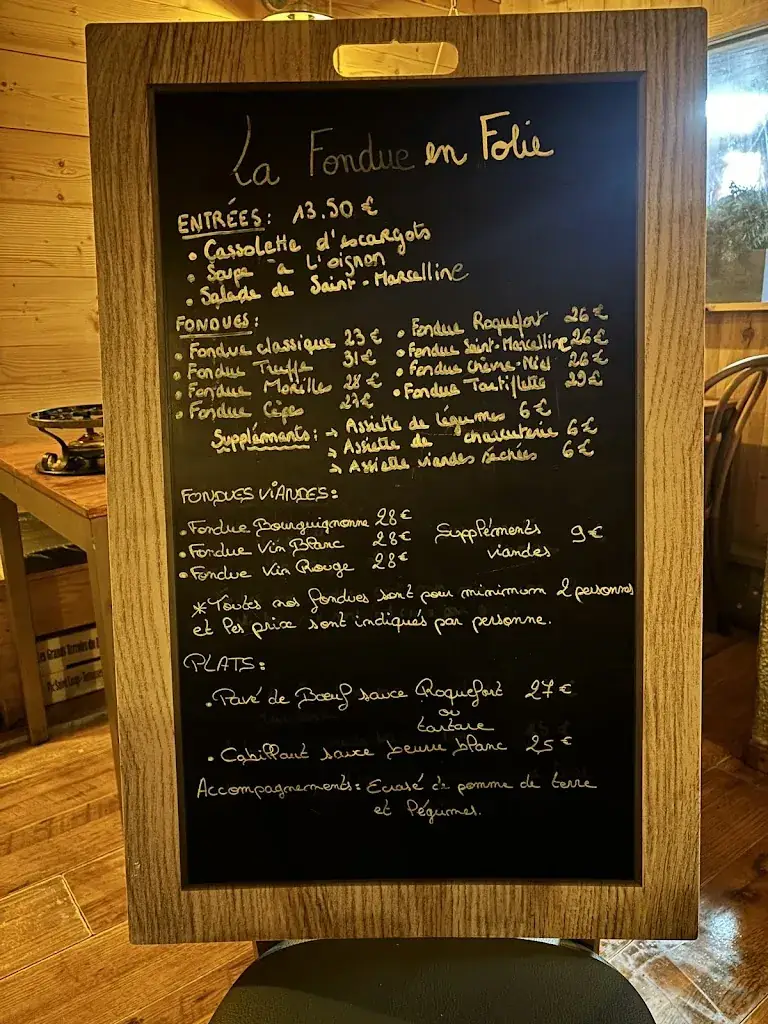 La Fondue en Folie
ENTRÉES: 13.50 €
• Cassolette d'escargots
• Soupe à L'oignon
• Salade de Saint-Marcelline
FONDUES:
• Fondue classique 23 €
• Fondue Truffe 31 €
• Fondue Morille 28 €
• Fondue Cèpes 27€
• Fondue Roquefort 26 €
• Fondue Saint-Marcelline 26 €
• Fondue chèvre-Miel 26 €
• Fondue Tartiflette 29 €
Suppléments: → Assiette de légumes 6 €
→ Assiette de charcuterie 6 €
→ Assiette viandes séchées 6 €
FONDUES VIANDES:
• Fondue Bourguignonne 28 €
• Fondue Vin Blanc 28 €
• Fondue Vin Rouge 28 €
Suppléments 9 €
viandes
* Toutes nos fondues sont pour minimum 2 personnes
et les prix sont indiqués par personne.
PLATS:
• Pavé de Bœuf sauce Roquefort 27 €
ou
tartare
• Cabillaut sauce beurre blanc 25 €
Accompagnements: Ecrasé de pomme de terre
et légumes.